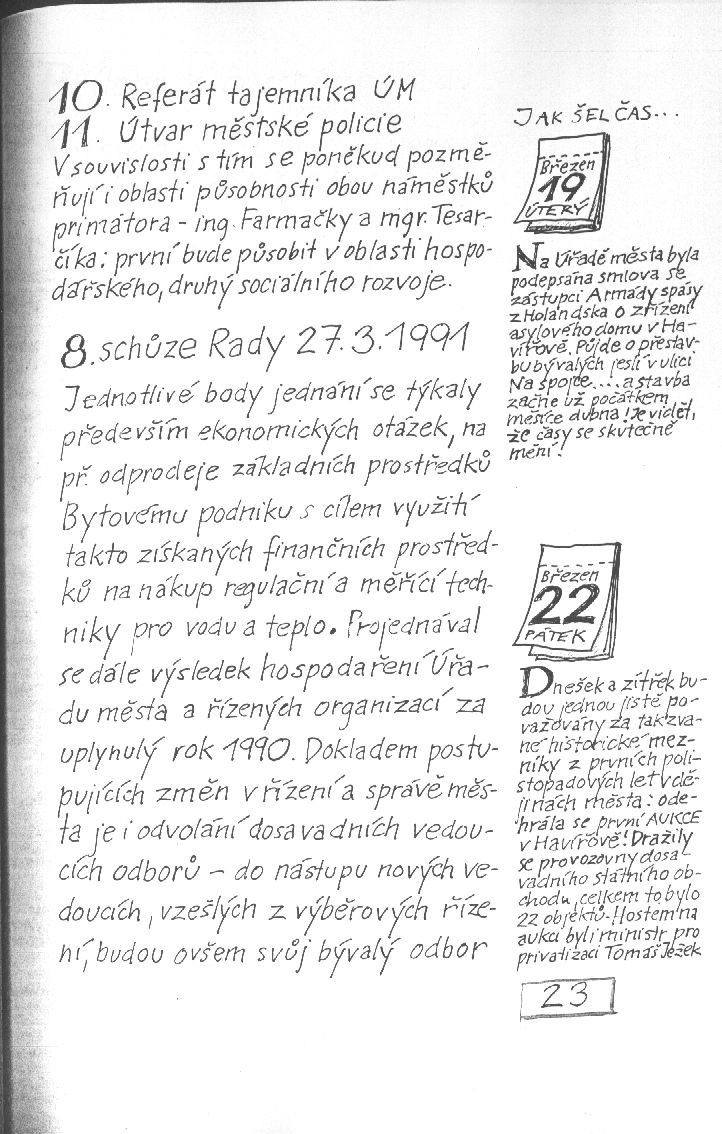 10. Referát tajemníka ÚM
11. Útvar městské policie
V souvislosti s tím se poněkud pozmě-
ňují i oblasti působnosti obou náměstků
primátora - ing. Farmačky a mgr. Tesar-
číka: první bude působit v oblasti hospo-
dářského, druhý sociálního rozvoje.
8. schůze Rady 27.3.1991
Jednotlivé body jednání se týkaly
především ekonomických otázek, na
př. odprodeje základních prostředků
Bytovému podniku s cílem využití
takto získaných finančních prostřed-
ků na nákup regulační a měřící tech-
niky pro vodu a teplo. Projednával
se dále výsledek hospodaření Úřa-
du města a řízených organizací za
uplynulý rok 1990. Dokladem postu-
pujících změn v řízení a správě měs-
ta je i odvolání dosavadních vedou-
cích odborů - do nástupu nových ve-
doucích, vzešlých z výběrových říze-
ní, budou ovšem svůj bývalý odbor
JAK ŠEL ČAS...
Březen
19
ÚTERÝ
Na Úřadě města byla
podepsána smlova se
zástupci Armády spásy
z Holandska o zřízení
asylového domu v Ha-
vířově. Půjde o přestav-
bu bývalých jeslí v ulici
Na spojce.... a stavba
začne už počátkem
měsíce dubna! Je vidět,
že časy se skutečně
mění!
Březen
22
PÁTEK
Dnešek a zítřek bu-
dou jednou jistě po-
važovány za takzva-
né historické mez-
níky z prvních poli-
stopadových let v dě-
jinách města: ode-
hrála se první AUKCE
v Havířově! Dražily
se provozovny dosa-
vadního státního ob-
chodu, celkem to bylo
22 objektů. Hostem na
aukci byl i ministr pro
privatizaci Tomáš Ježek
23